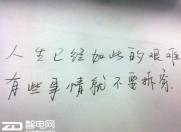 人生已经如此的艰难
有些事情就不要拆穿.
智电网
ZD